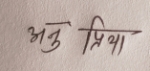 अनु प्रिया